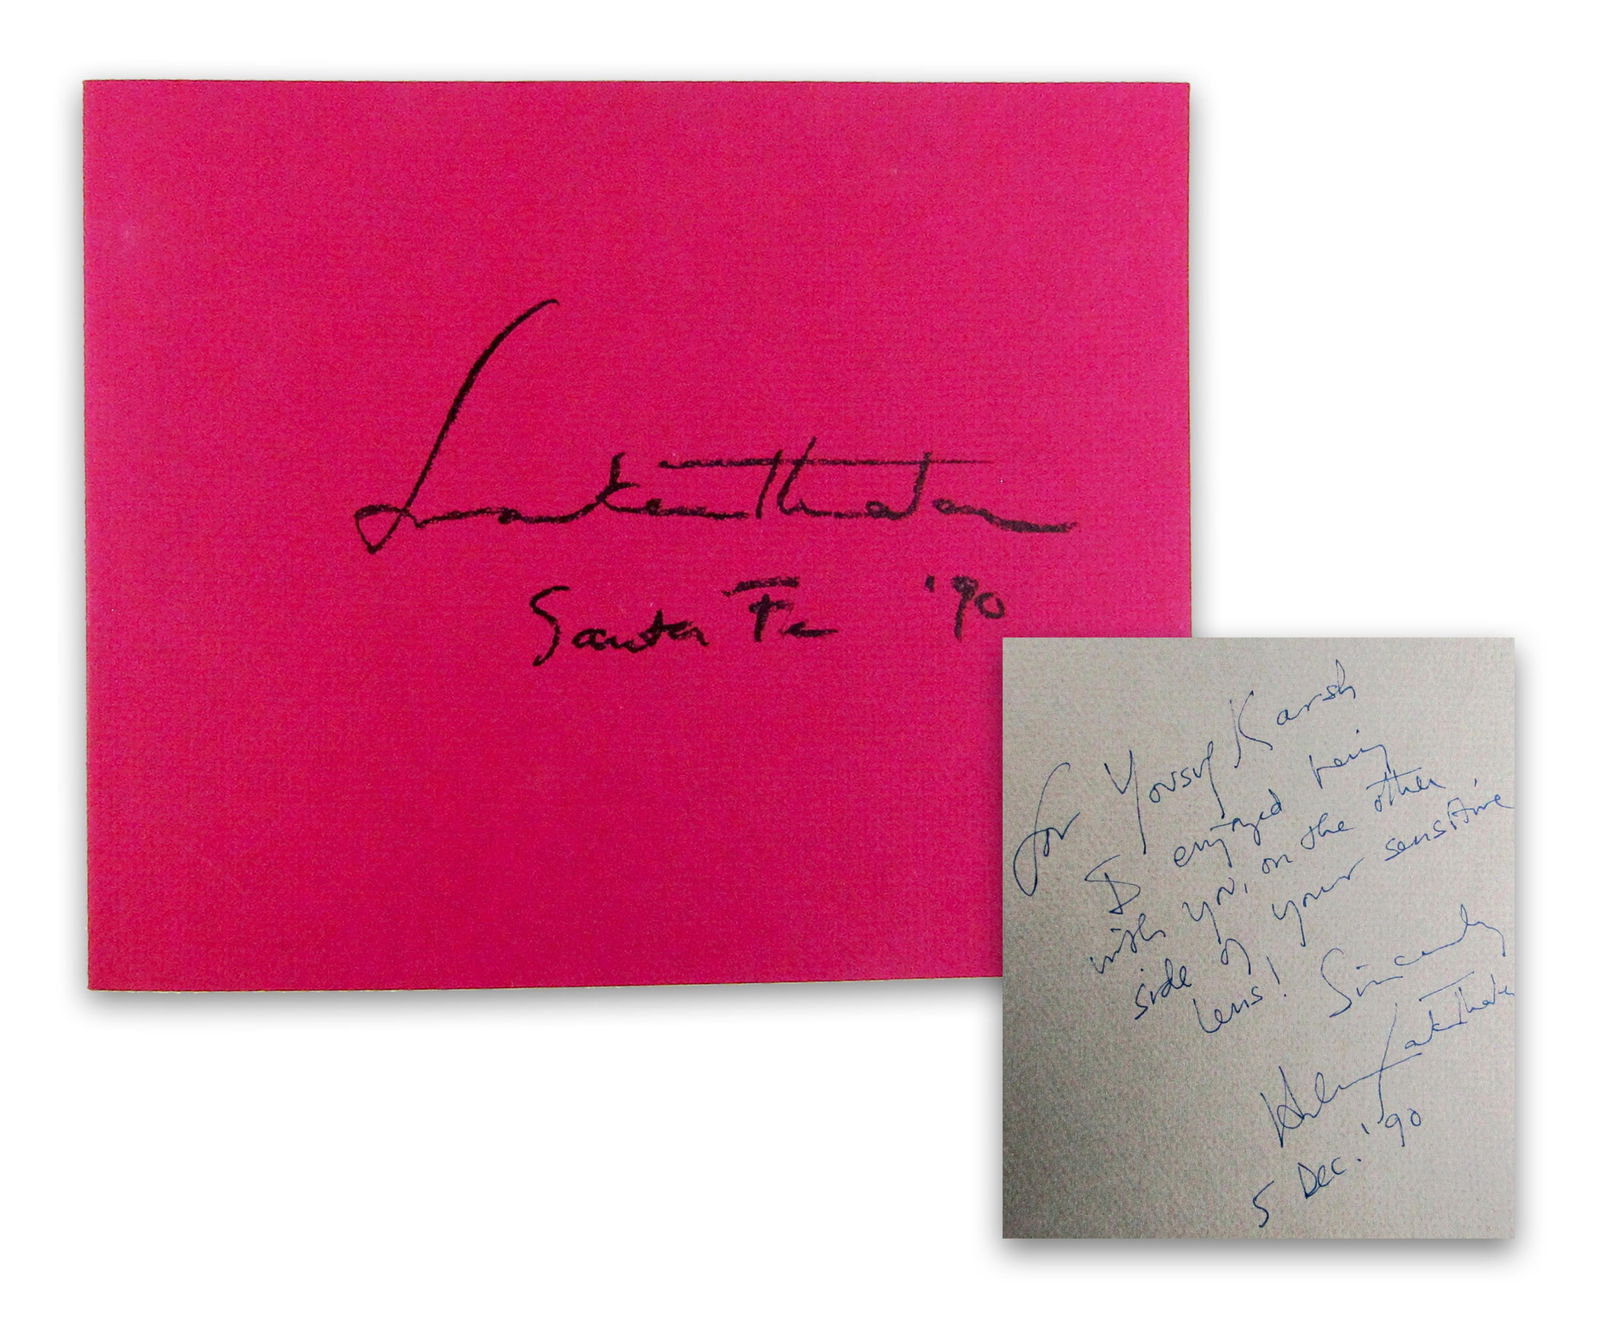 Lakenthaten
Santa Fe '90
for Yousuf Karsh
I enjoyed being
with you, on the other
side of your sensitive
lens! Sincerely
5 Dec. '90